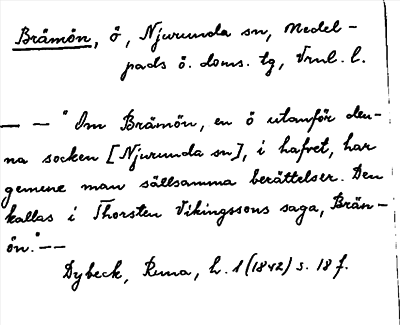 Brämön, ö, Njurunda sn, Medel-
pads ö. doms. tg, Vrnl. l.
— — "Om Brämön, en ö utanför den-
na socken [Njurunda sn], i hafvet, har
gemene man sällsamma berättelser. Den
kallas i Thorsten Vikingssons saga, Brän-
ön." — —
Dybeck, Runa, h. 1 (1842) s. 18 f.